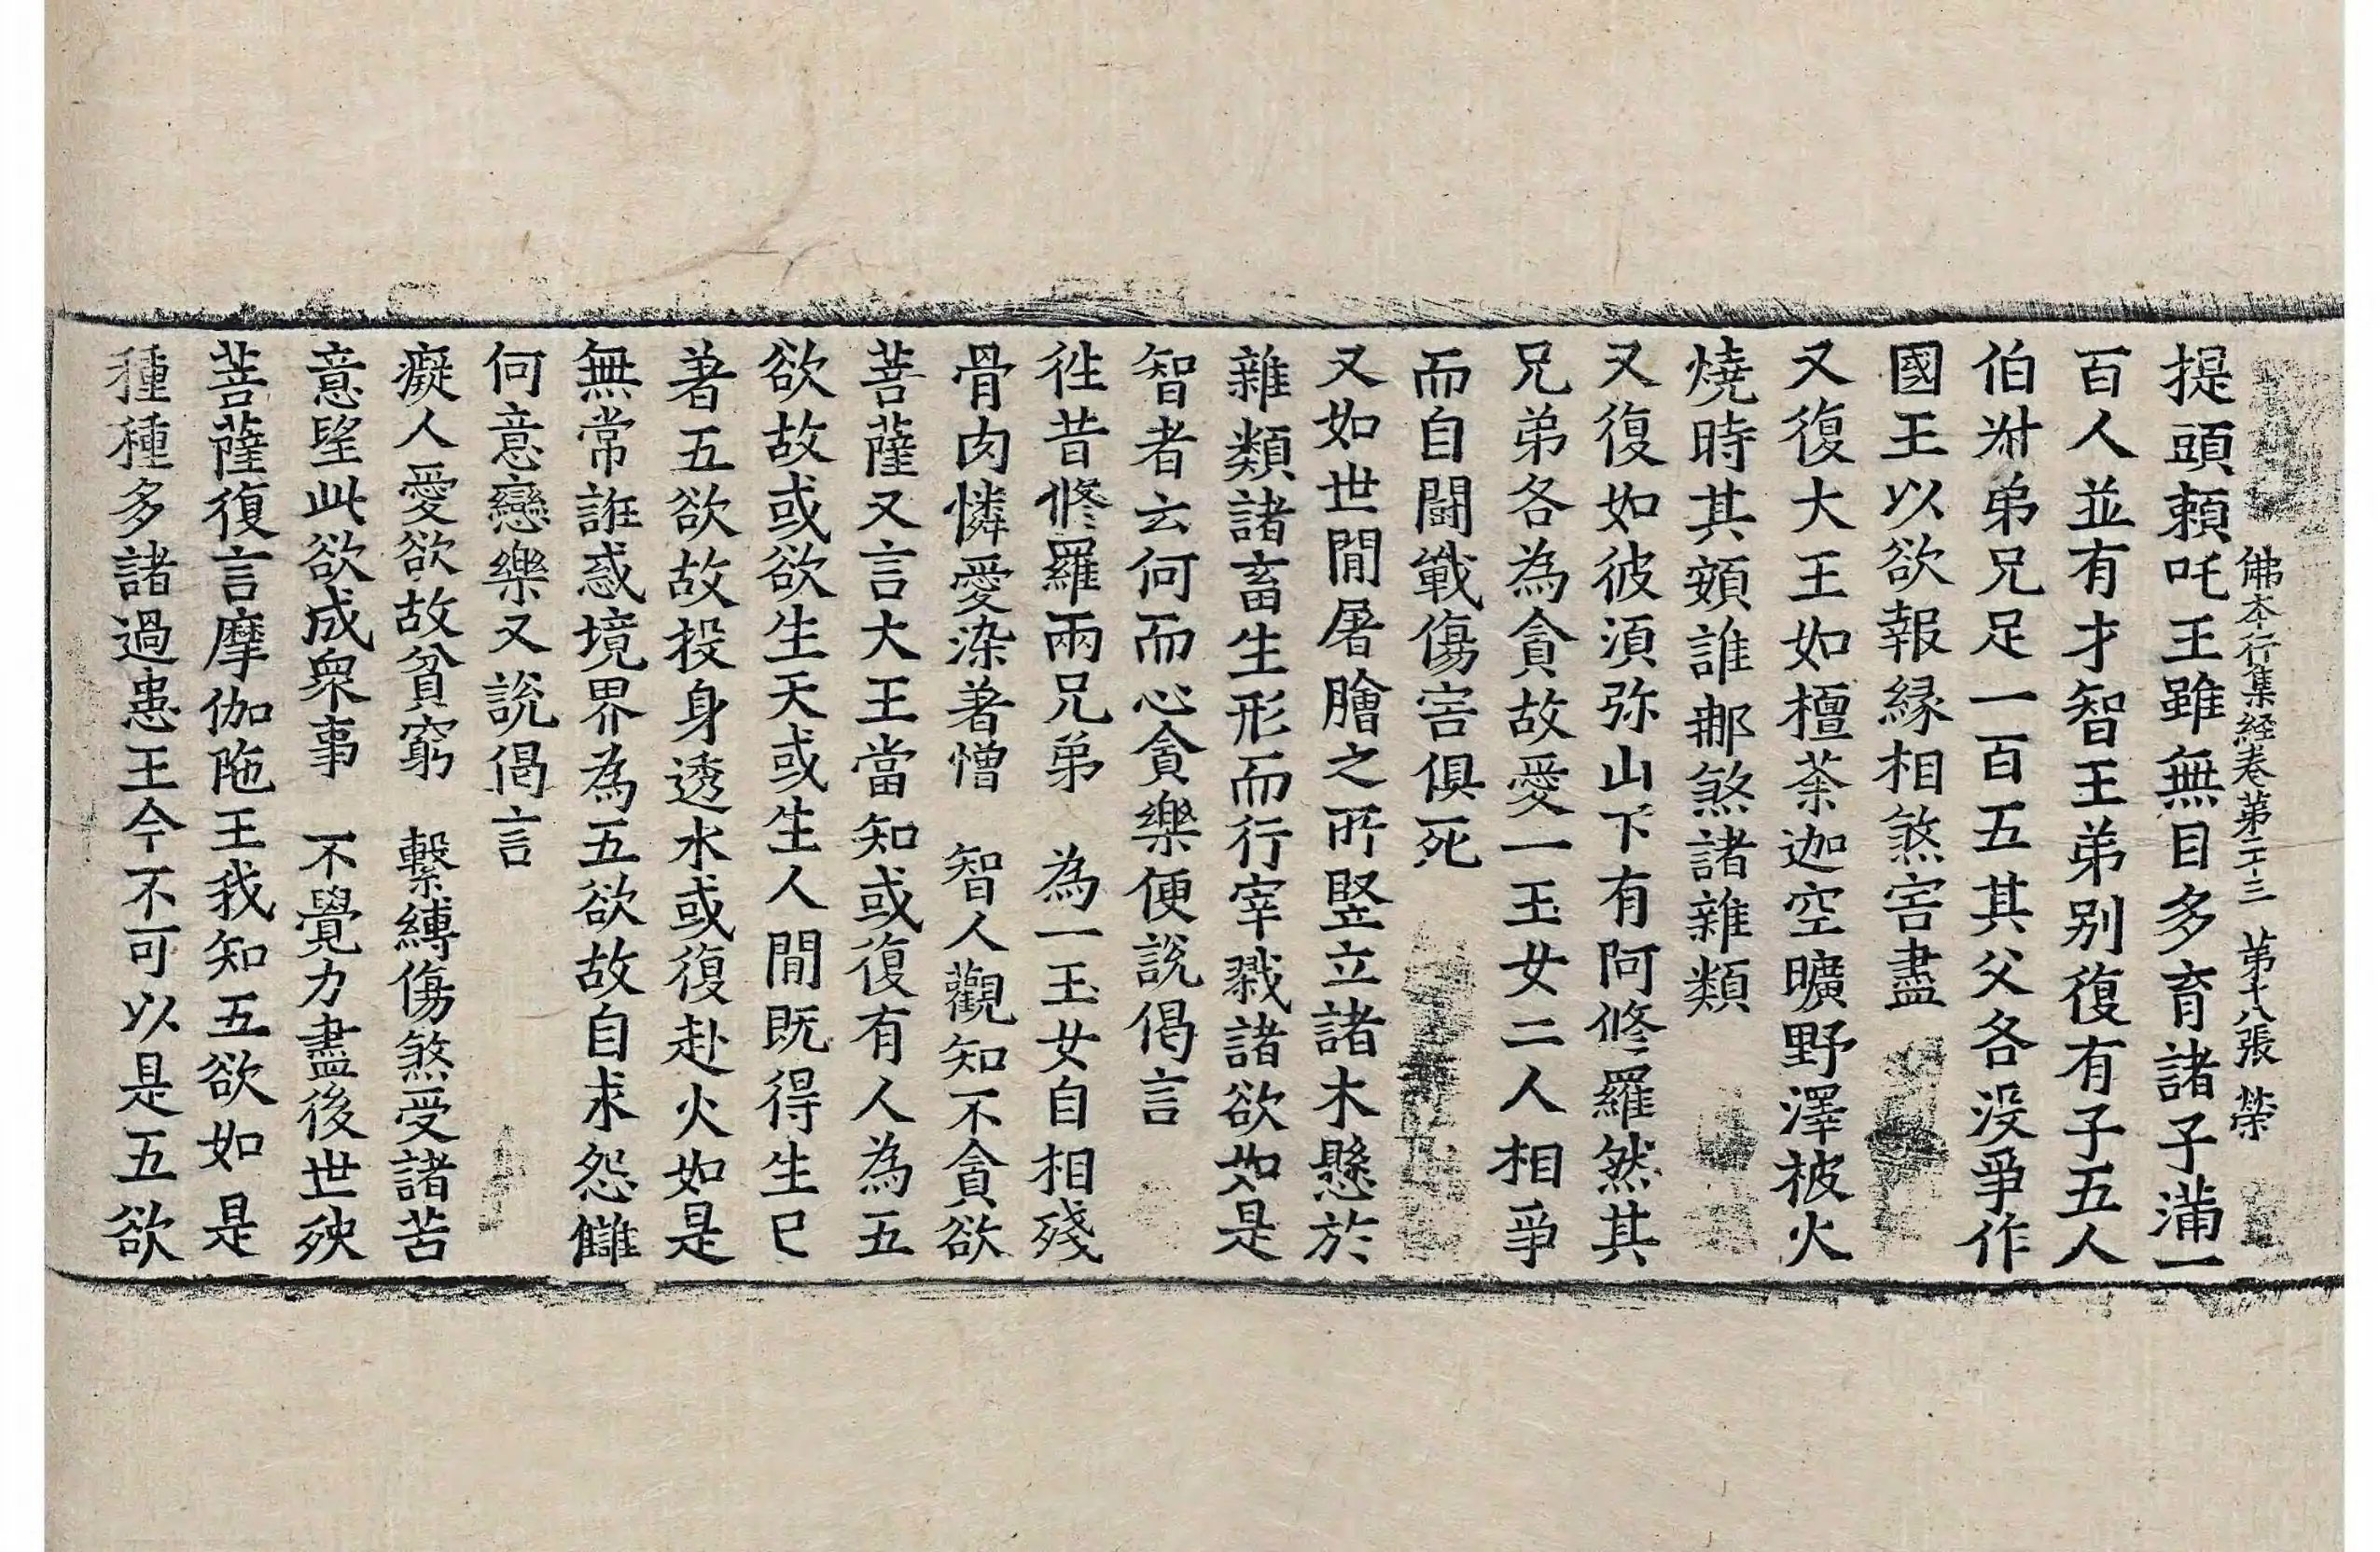 佛本行集經卷第二十三 第十八張 榮
提頭頼吒王雖無目多育諸子滿一
百人並有才智王弟別復有子五人
伯叔弟兄足一百五其父各没爭作
國王以欲報縁相煞害盡
又復大王如檀茶迦空曠野澤被火
燒時其頞誰那煞諸雜類
又復如彼須弥山下有阿修羅然其
兄弟各為貪故愛一玉女二人相爭
而自鬪戰傷害俱死
又如世間屠膾之所竪立諸木懸於
雜類諸畜生形而行宰戮諸欲如是
智者云何而心貪樂便說偈言
往昔修羅兩兄弟 為一玉女自相殘
骨肉憐愛染著憎 智人觀知不貪欲
菩薩又言大王當知或復有人為五
欲故或欲生天或生人間既得生已
著五欲故投身透水或復赴火如是
無常誑惑境界為五欲故自求怨讎
何意戀樂又說偈言
癡人愛欲故貧窮 繫縛傷煞受諸苦
意望此欲成衆事 不覺力盡後世殃
菩薩復言摩伽陁王我知五欲如是
種種多諸過患王今不可以是五欲